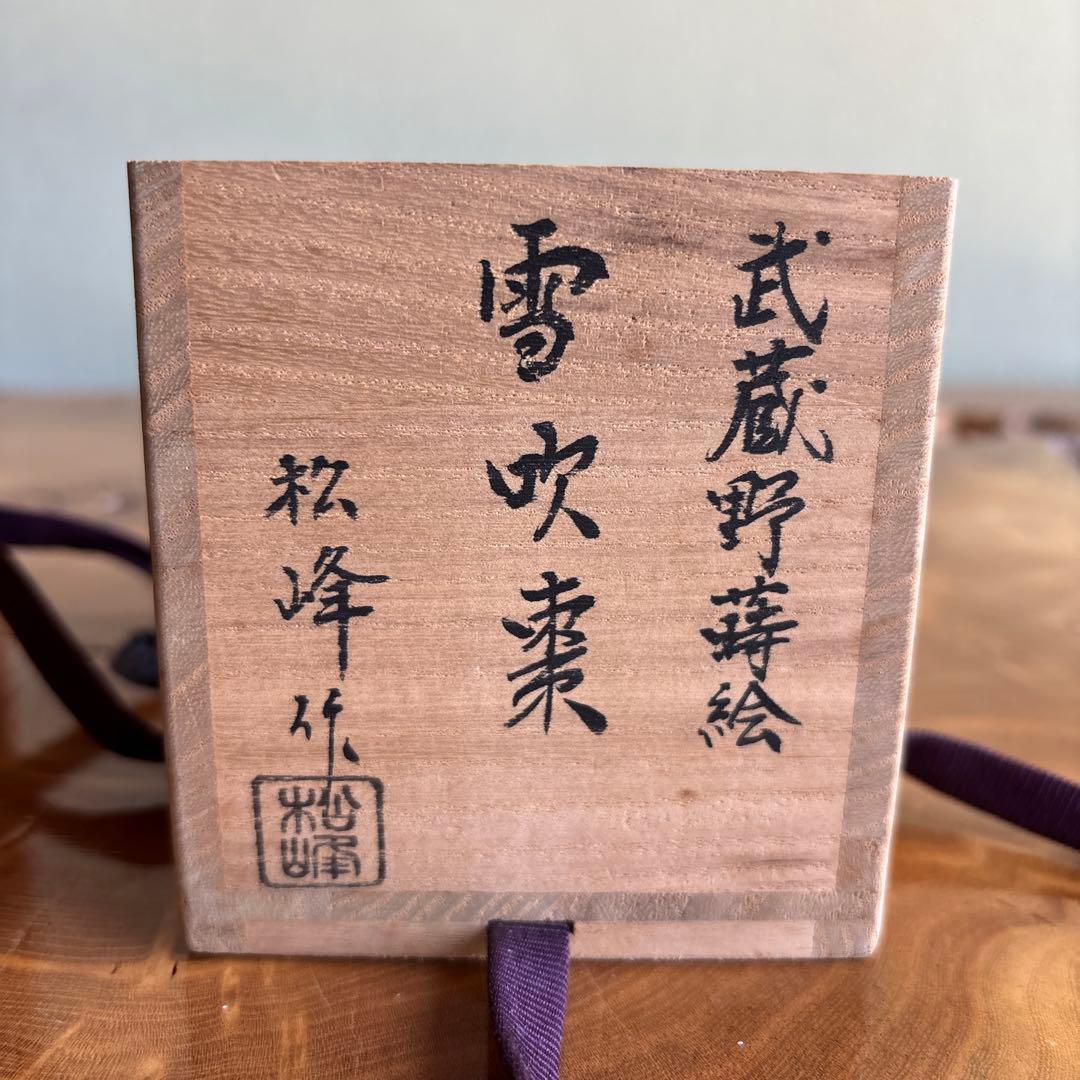 武蔵野蒔絵
雪吹棗
松峰作
松峰